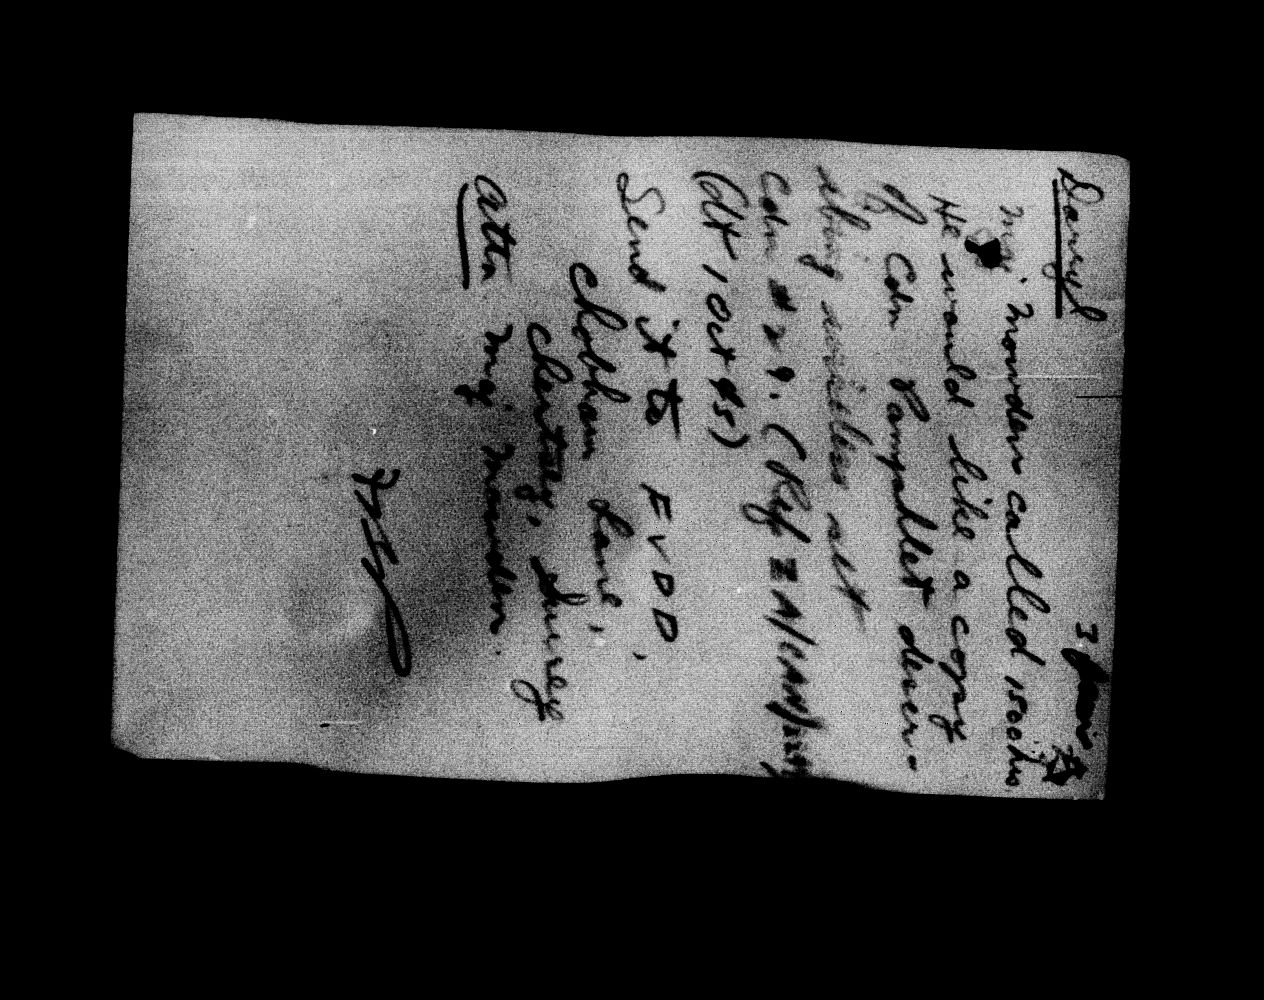 Daryl
3
Maj. Mowden called 1500 hrs
He would like a copy
of Cdn Pamphlet descr-
ibing wireless set
Cdn 29. (Ref
(dt 1 Oct 45)
Send it to FVDD.
Chobham Lane,
Chertsey, Surrey
Attn Maj. Mowden.